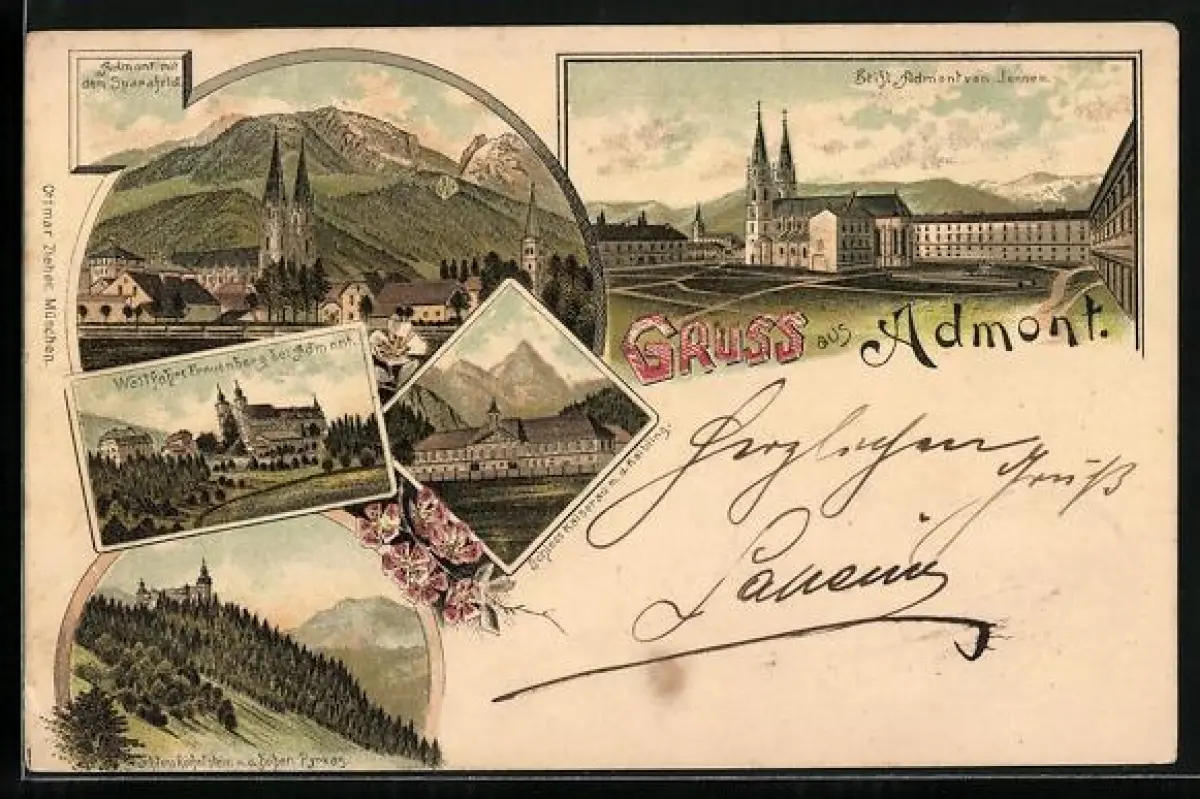 Admont mit
dem Sparafeld.
Stift Admont von Innen.
Ottmar Zieher, München.
GRUSS aus Admont.
Wallfahrt Frauenberg bei Admont.
Schloss Kaiserau m. d. Kalbling.
Herzlichen
Gruß
m. d. hohen Pyrgas.